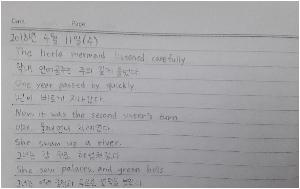 Date
2018년 4월 11일(수)
The little mermaid listened carefully
인어공주는 주의 깊게 들었다.
One year passed by quickly
1년이 빠르게 지나갔다.
Now it was the second sister's turn
She swam up a river.
그녀는 강 위로 헤엄쳤다.
She saw palaces and green hills
그녀는